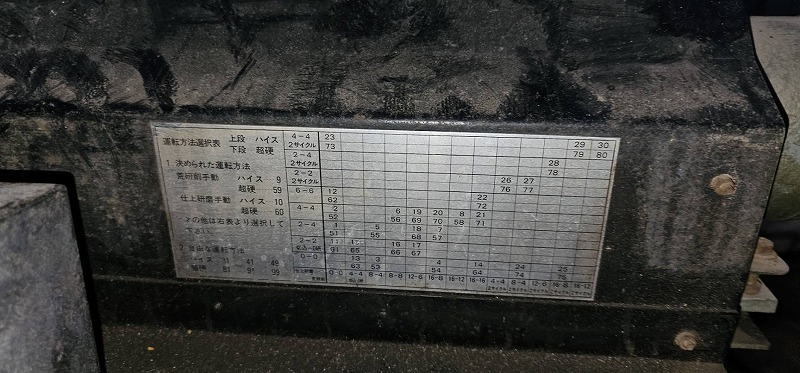 運転方法選択表 上段 ハイス 4-4 23 29 30
下段 超硬 2サイクル 73 79 80
2-4 28
1. 決められた運転方法 2サイクル 78
荒研削手動 ハイス 9 2-2 26 27
超硬 59 2サイクル 76 77
仕上研磨手動 ハイス 10 6-6 12 22
超硬 60 62 72
4-4 2 6 19 20 8 21
その他は右表より選択して 52 56 69 70 58 71
下さい。 2-4 5 18 7
51 55 68 57
2. 自由な運転方法 2-2 11 16 17
ハイス 11 41 49 91 65 66 67
超硬 81 91 99 0-0 13 3 4 14 24 25
63 53 54 64 74 75
仕上研磨 0-0 4-4 8-4 8-8 12-6 16-8 16-12 16-16 4-4 8-4 12-6 16-8 16-12
2サイクル 2サイクル 2サイクル 2サイクル 2サイクル